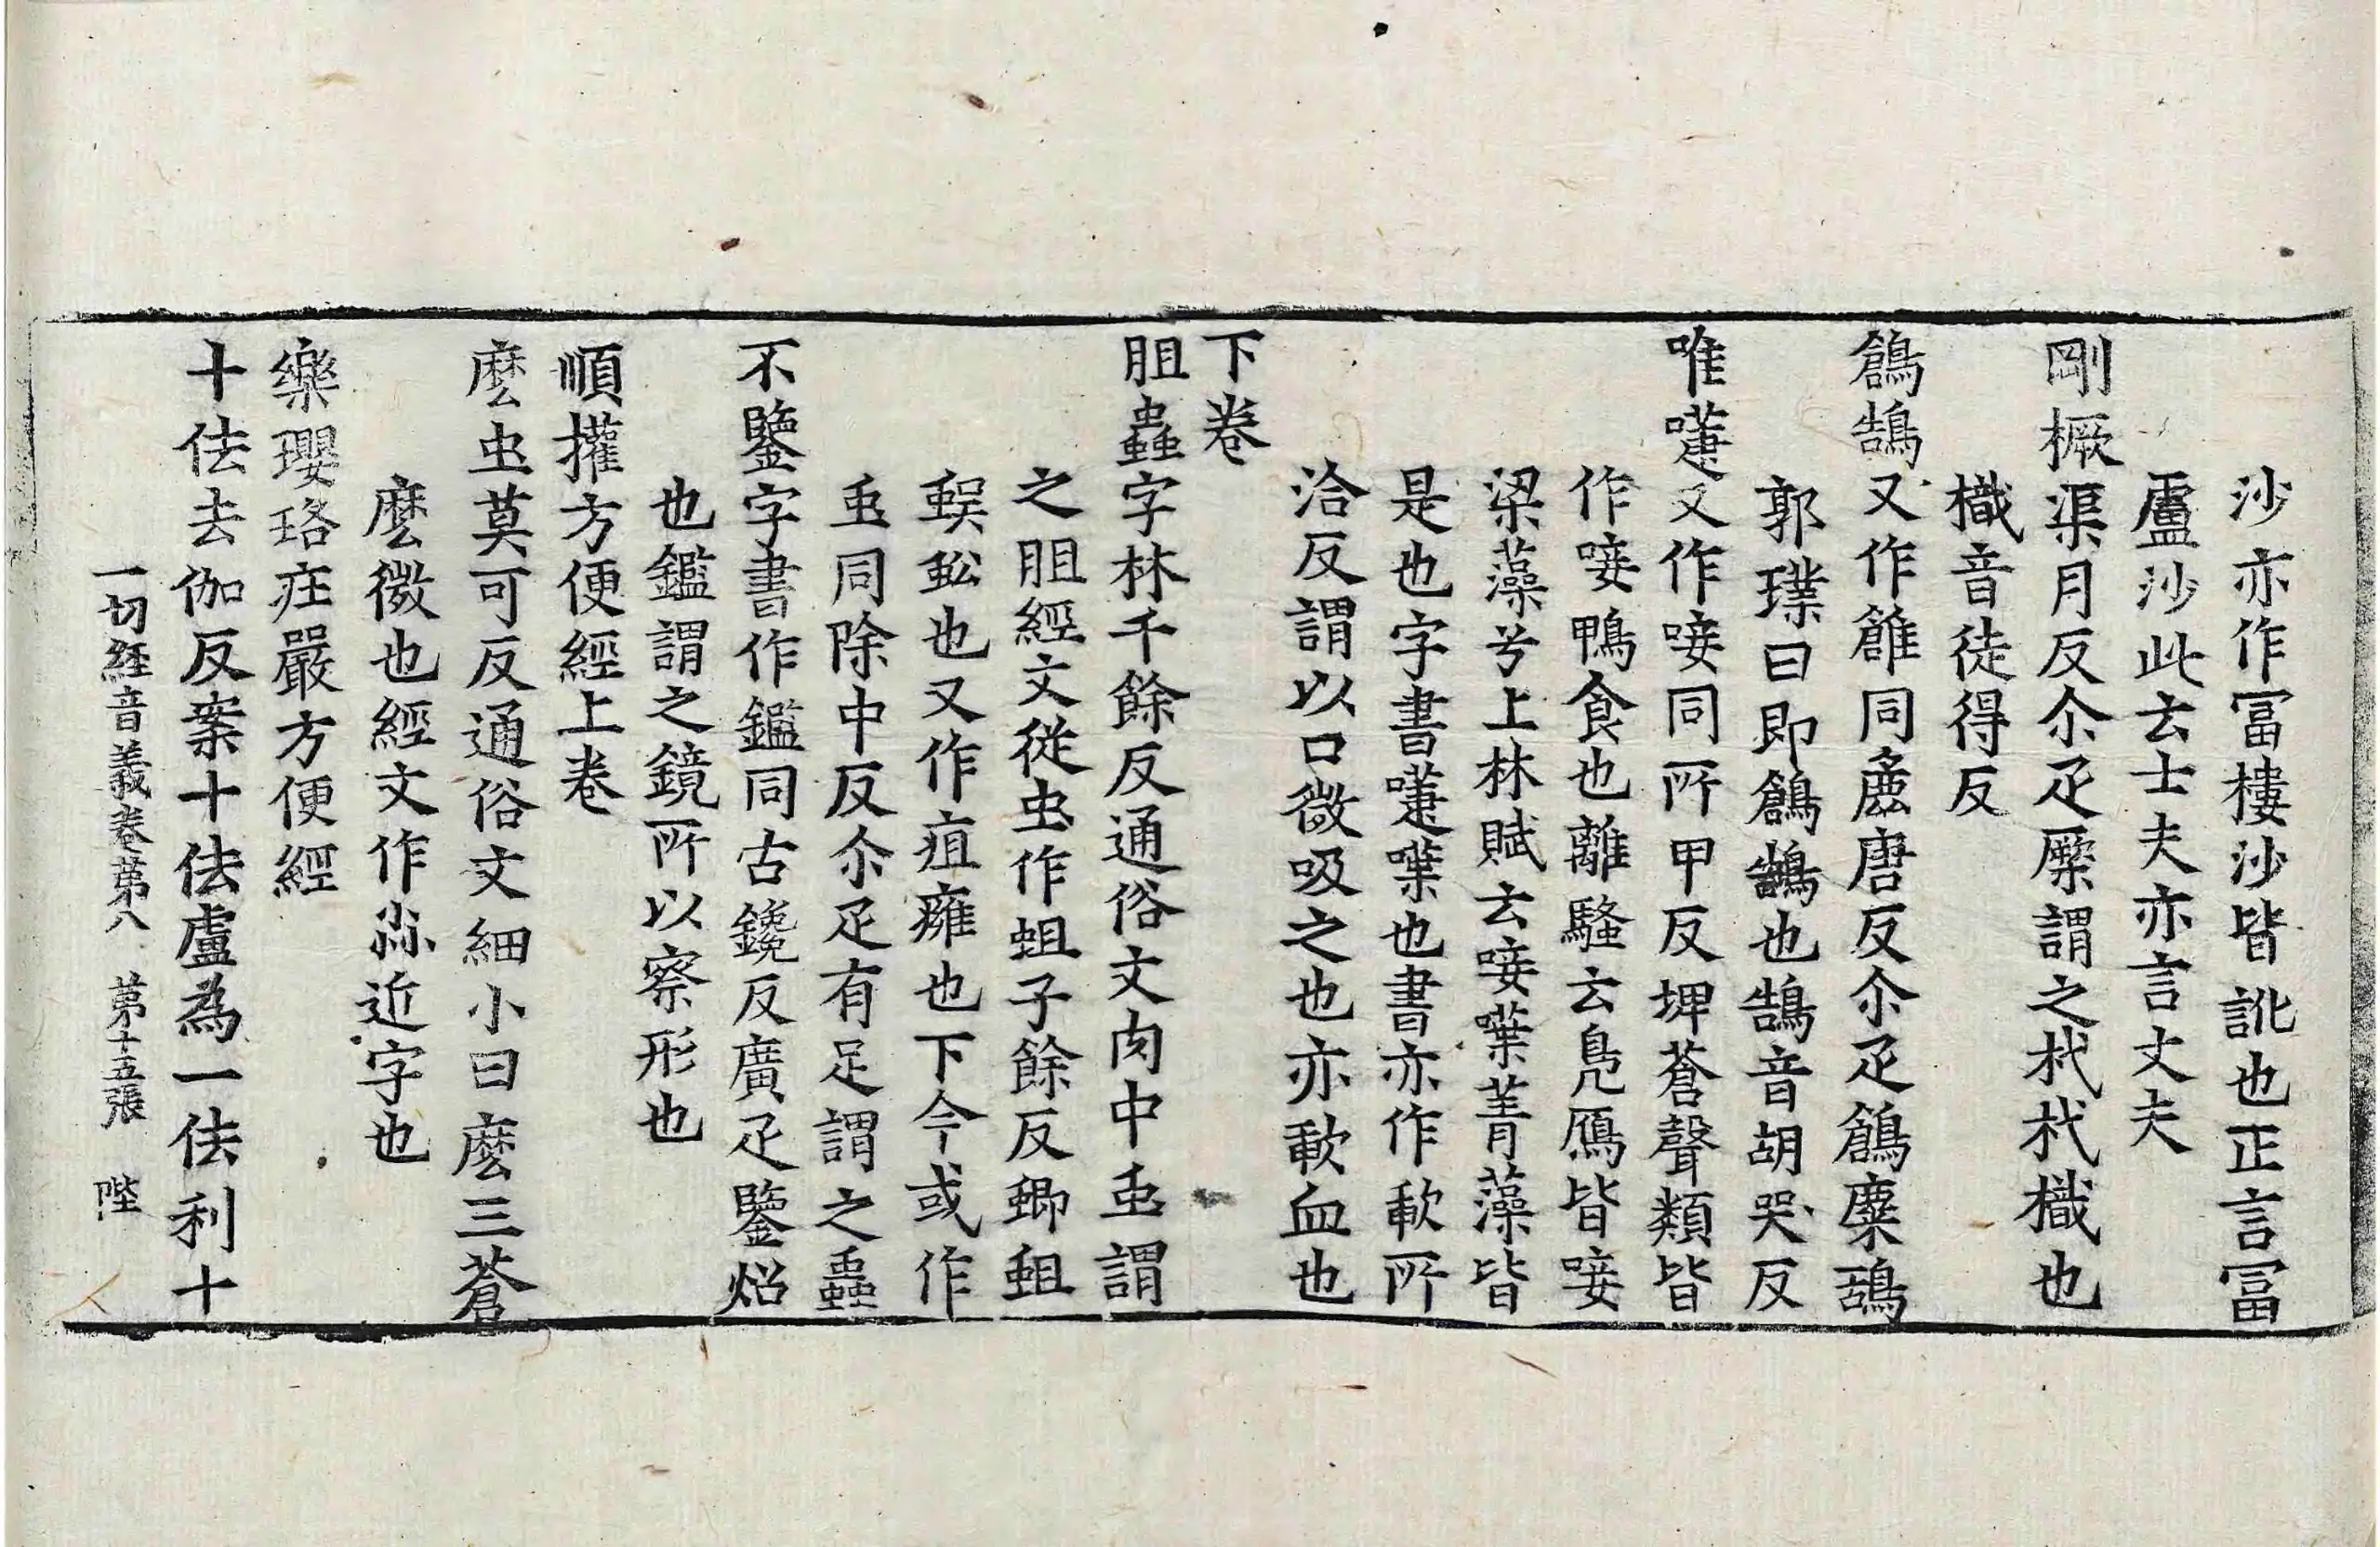 沙亦作冨樓沙皆訛也正言冨
盧沙此云士夫亦言丈夫
剛橛渠月反尒疋橜謂之杙杙樴也
樴音徒得反
鶬鴰又作鶬同麁唐反尒疋鶬麋鴰
郭璞曰即鶬鴰也鵠音胡哭反
唯㗱又作唼同所甲反埤蒼聲類皆
作唼鴨食也離騷云鳧鴈皆唼
梁藻兮上林賦云唼䔾菁藻皆
是也字書㗱㗼也書亦作歃所
洽反謂以口微吸之也亦歃血也
下卷
胆蟲字林千餘反通俗文肉中䖝謂
之胆經文從虫作蛆子餘反蝍蛆
蜈蚣也又作疽癰也下今或作
䖝同除中反尒疋有足謂之蟲
不鑒字書作鑑同古鑱反廣疋鑒炤
也鑑謂之鏡所以察形也
順攉方便經上卷
麽虫莫可反通俗文細小曰麽三蒼
麽微也經文作尛近字也
樂瓔珞庄嚴方便經
十佉去伽反案十佉盧為一佉利十
一切經音義卷苐八 苐十五張 陛